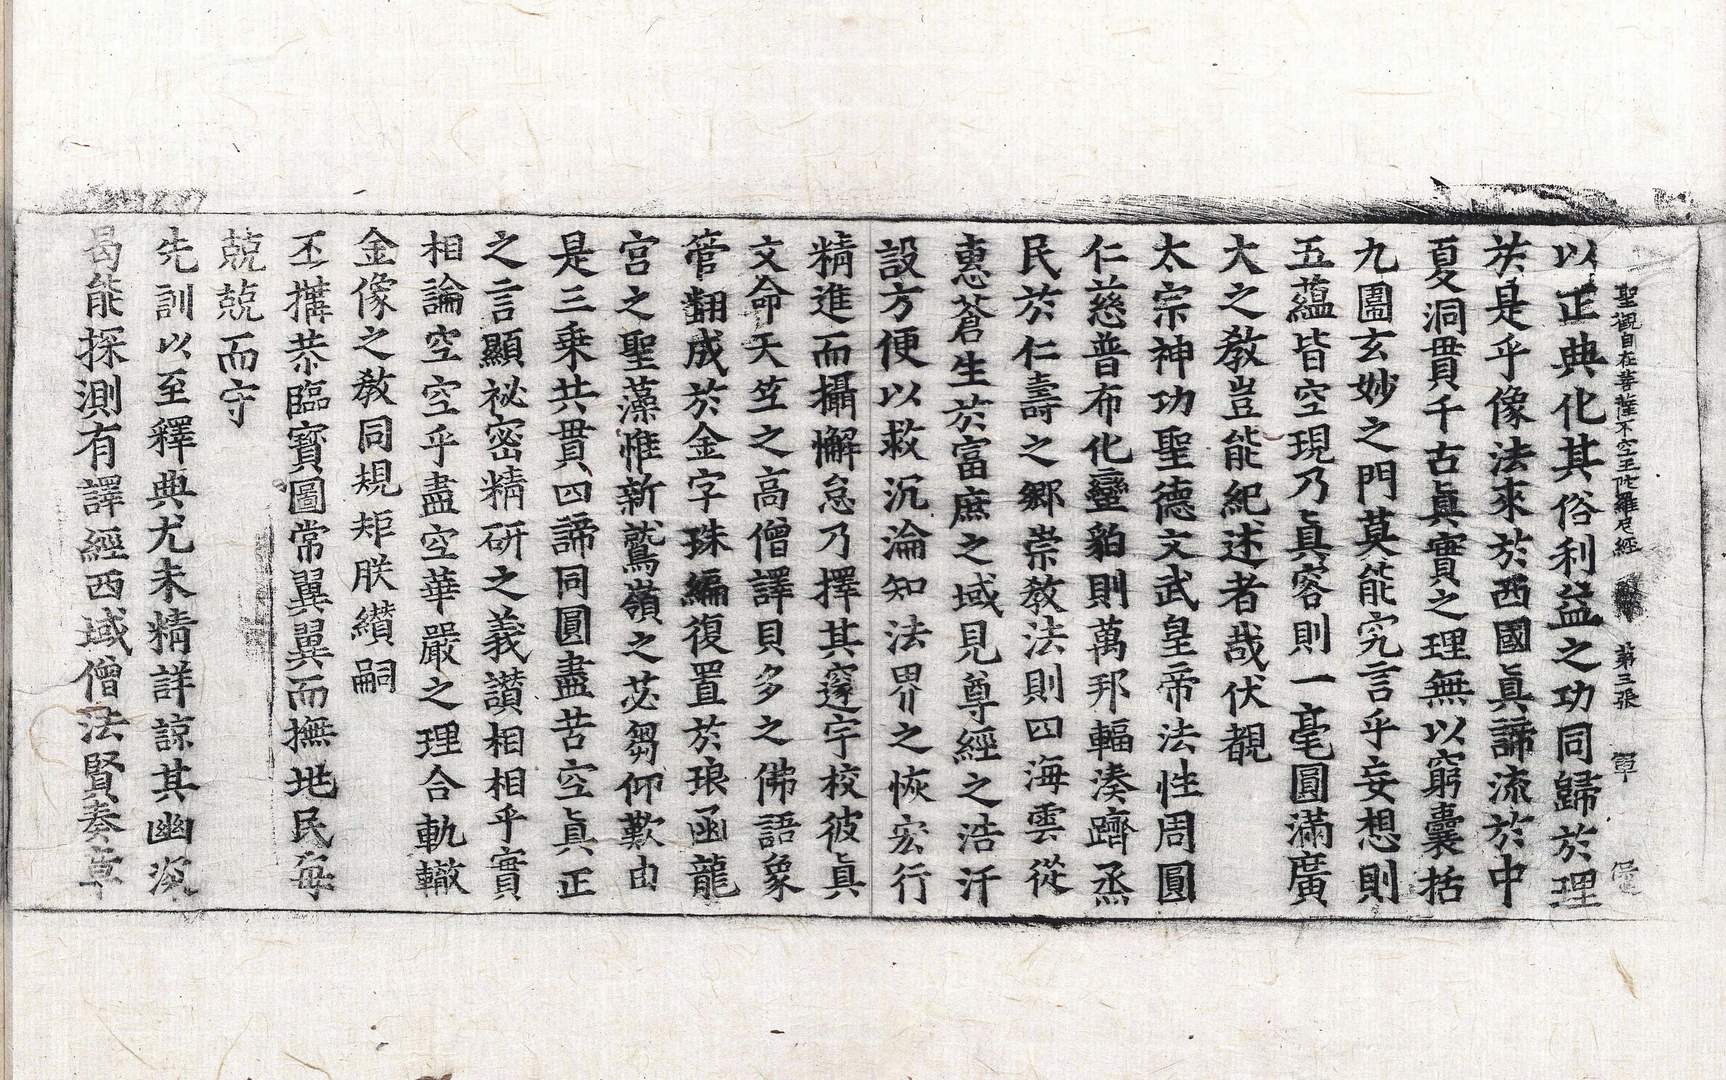 聖觀自在菩薩不空王陁羅尼經 第三張 覃
以正典化其俗利益之功同歸於理
於是乎像法來於西國眞諦流於中
夏洞貫千古眞實之理無以窮囊括
九圍玄妙之門莫能究言乎妄想則
五蘊皆空現乃眞容則一毫圓滿廣
大之教豈能紀述者哉伏覩
太宗神功聖德文武皇帝法性周圓
仁慈普布化蠻貊則萬邦輻湊躋烝
民於仁壽之鄉崇教法則四海雲從
惠蒼生於富庶之域見尊經之浩汗
設方便以救沉淪知法界之恢宏行
精進而攝懈怠乃擇其邃宇校彼眞
文命天竺之高僧譯貝多之佛語象
管翻成於金字珠編復置於琅函龍
宮之聖藻惟新鷲嶺之苾芻仰歎由
是三乘共貫四諦同圓盡苦空眞正
之言顯祕密精研之義讚相相乎實
相論空空乎盡空華嚴之理合軌轍
金像之教同規矩朕纘嗣
丕搆恭臨寶圖常翼翼而撫地民每
兢兢而守
先訓以至釋典尤未精詳諒其幽深
曷能探測有譯經西域僧法賢奏章